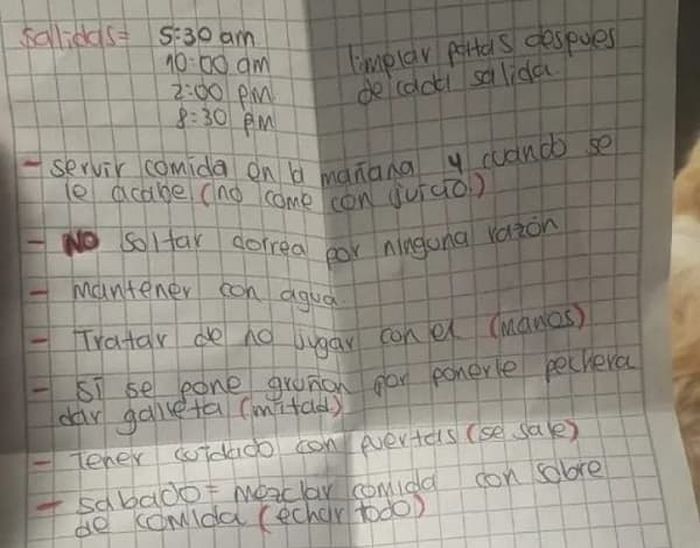 Salidas= 5:30 am
10:00 am
2:00 pm
8:30 pm
limpiar patas despues
de cada salida.
- servir comida en la mañana y cuando se
le acabe (no come con juicio)
- NO soltar correa por ninguna razón
- mantener con agua.
- Tratar de no jugar con el (manos)
- Si se pone gruñon por ponerle pechera
dar galleta (mitad)
- Tener cuidado con puertas (se sale)
- sabado = mezclar comida con sobre
de comida (echar todo)